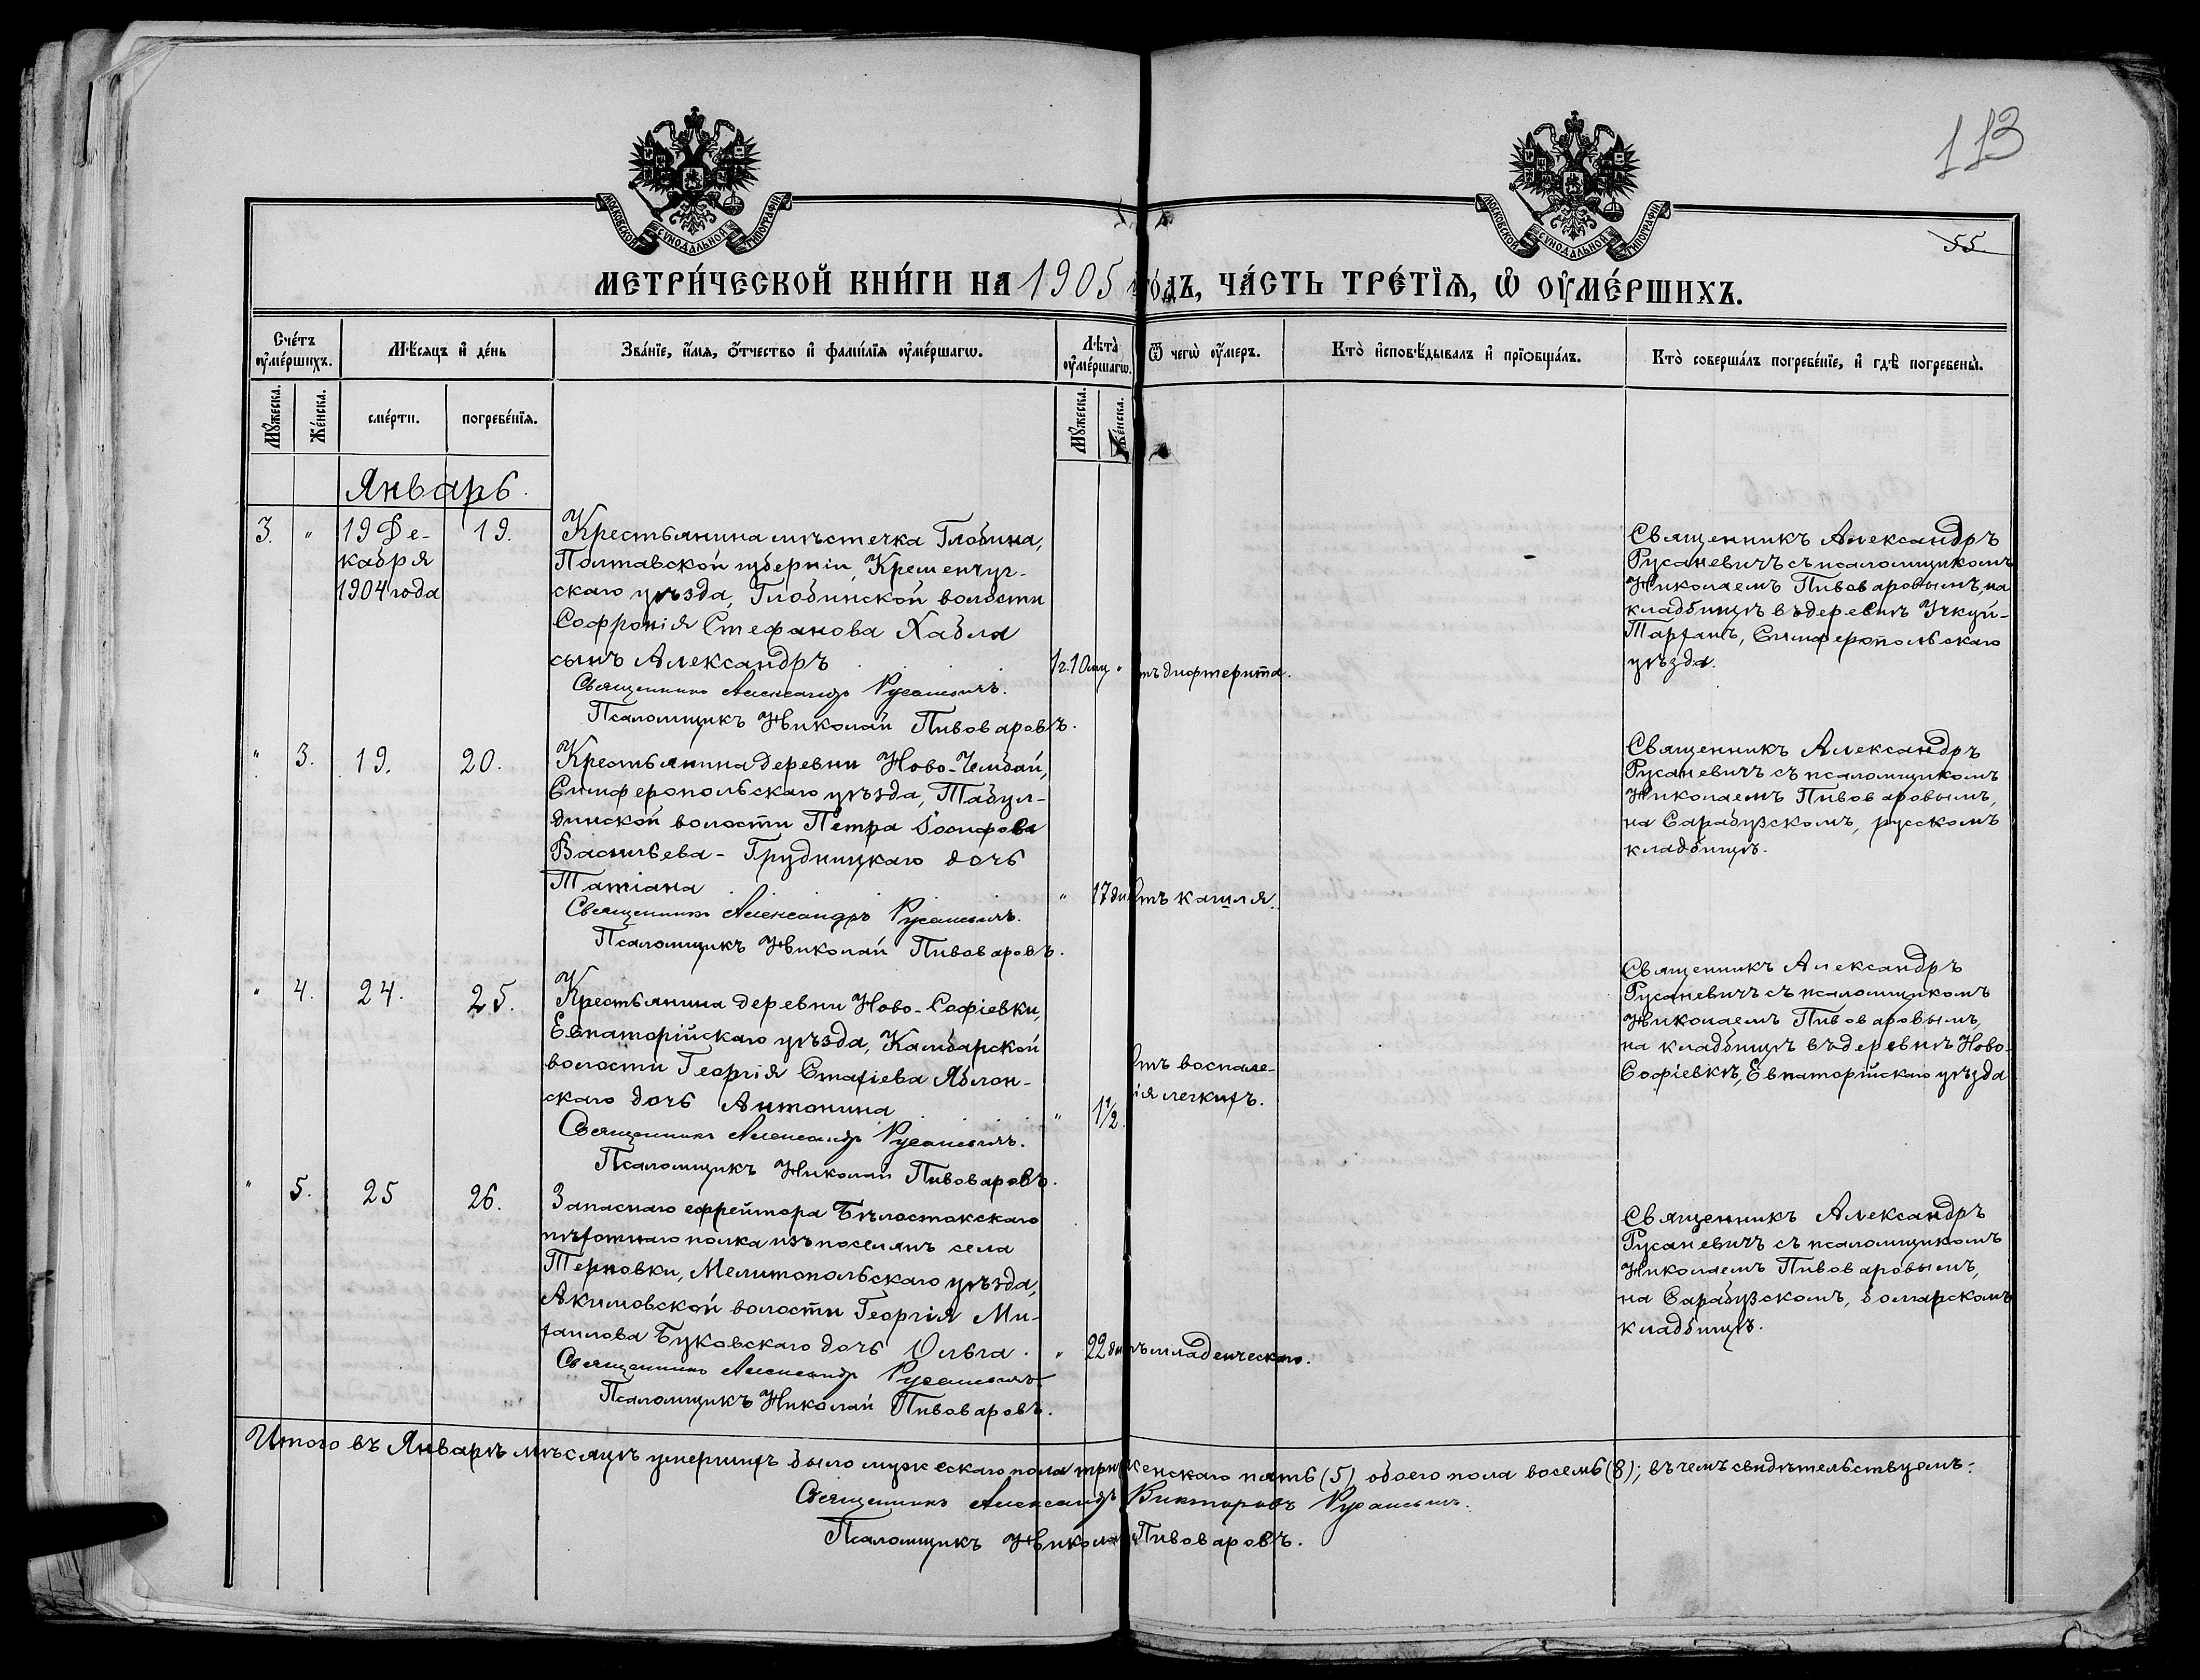 113
55
МОСКОВСКОЙ СѴНОДАЛЬНОЙ ТИПОГРАФІИ
МОСКОВСКОЙ СѴНОДАЛЬНОЙ ТИПОГРАФІИ
МЕТРИ́ЧЕСКОЙ КНИ́ГИ НА 1905 го́дъ, ЧА́СТЬ ТРЕ́ТЇѦ, Ѡ҆ ОУ҆МЕ́РШИХЪ.
Сче́тъ оу҆ме́ршихъ.
Мѣ́сяцъ и҆ де́нь
Зва́нїе, и҆́мя, ѻ҆́тчество и҆ фами́лїя оу҆ме́ршагѡ.
Лѣ̀та оу҆ме́ршагѡ.
Ѿ чегѡ̀ оу҆́меръ.
Кто̀ и҆сповѣ́дывалъ и҆ прїѡбща́лъ.
Кто̀ соверша́лъ погребе́нїе, и҆ гдѣ̀ погребены̀.
Мꙋ́жеска.
Же́нска.
сме́рти.
погребе́нїя.
Мꙋ́жеска.
Же́нска.
Январь.
3. " 19 Де-
кабря
1904 года
19.
Крестьянина мѣстечка Глобина,
Полтавской губерніи, Кременчуг-
скаго уѣзда, Глобинской волости
Софронія Стефанова Хабла
сынъ Александръ
1г.10мц "
отъ дифтерита.
Священникъ Александръ Русаневичъ.
Псаломщикъ Николай Пивоваровъ.
Священникъ Александръ
Русаневичъ съ псаломщикомъ
Николаемъ Пивоваровымъ, на
кладбищѣ въ деревнѣ Учкуй-
Тарханъ, Симферопольскаго
уѣзда.
" 3. 19. 20.
Крестьянина деревни Ново-Чембай,
Симферопольскаго уѣзда, Табул-
динской волости Петра Іосифова
Васильева-Грудницкаго дочь
Татіана
" 17 дн
отъ кашля.
Священникъ Александръ Русаневичъ.
Псаломщикъ Николай Пивоваровъ.
Священникъ Александръ
Русаневичъ съ псаломщикомъ
Николаемъ Пивоваровымъ,
на Сарабузскомъ, русскомъ
кладбищѣ.
" 4. 24. 25.
Крестьянина деревни Ново-Софіевки,
Евпаторійскаго уѣзда, Камбарской
волости Георгія Стахіева Яблон-
скаго дочь Антонина
" 1½
отъ воспале-
нія легкихъ.
Священникъ Александръ Русаневичъ.
Псаломщикъ Николай Пивоваровъ.
Священникъ Александръ
Русаневичъ съ псаломщикомъ
Николаемъ Пивоваровымъ,
на кладбищѣ въ деревнѣ Ново-
Софіевкѣ, Евпаторійскаго уѣзда
" 5. 25 26.
Запаснаго ефрейтора Бѣлостокскаго
пѣхотнаго полка изъ поселянъ села
Терновки, Мелитопольскаго уѣзда,
Акимовской волости Георгія Ми-
хаилова Буковскаго дочь Ольга.
" 22 дн
отъ младенческаго.
Священникъ Александръ Русаневичъ.
Псаломщикъ Николай Пивоваровъ.
Священникъ Александръ
Русаневичъ съ псаломщикомъ
Николаемъ Пивоваровымъ,
на Сарабузскомъ, болгарскомъ
кладбищѣ.
Итого въ Январѣ мѣсяцѣ умершихъ было мужескаго пола три женскаго пять (5) обоего пола восемь (8); въ чемъ свидѣтельствуемъ:
Священникъ Александръ Викторовъ Русаневичъ.
Псаломщикъ Николай Пивоваровъ.